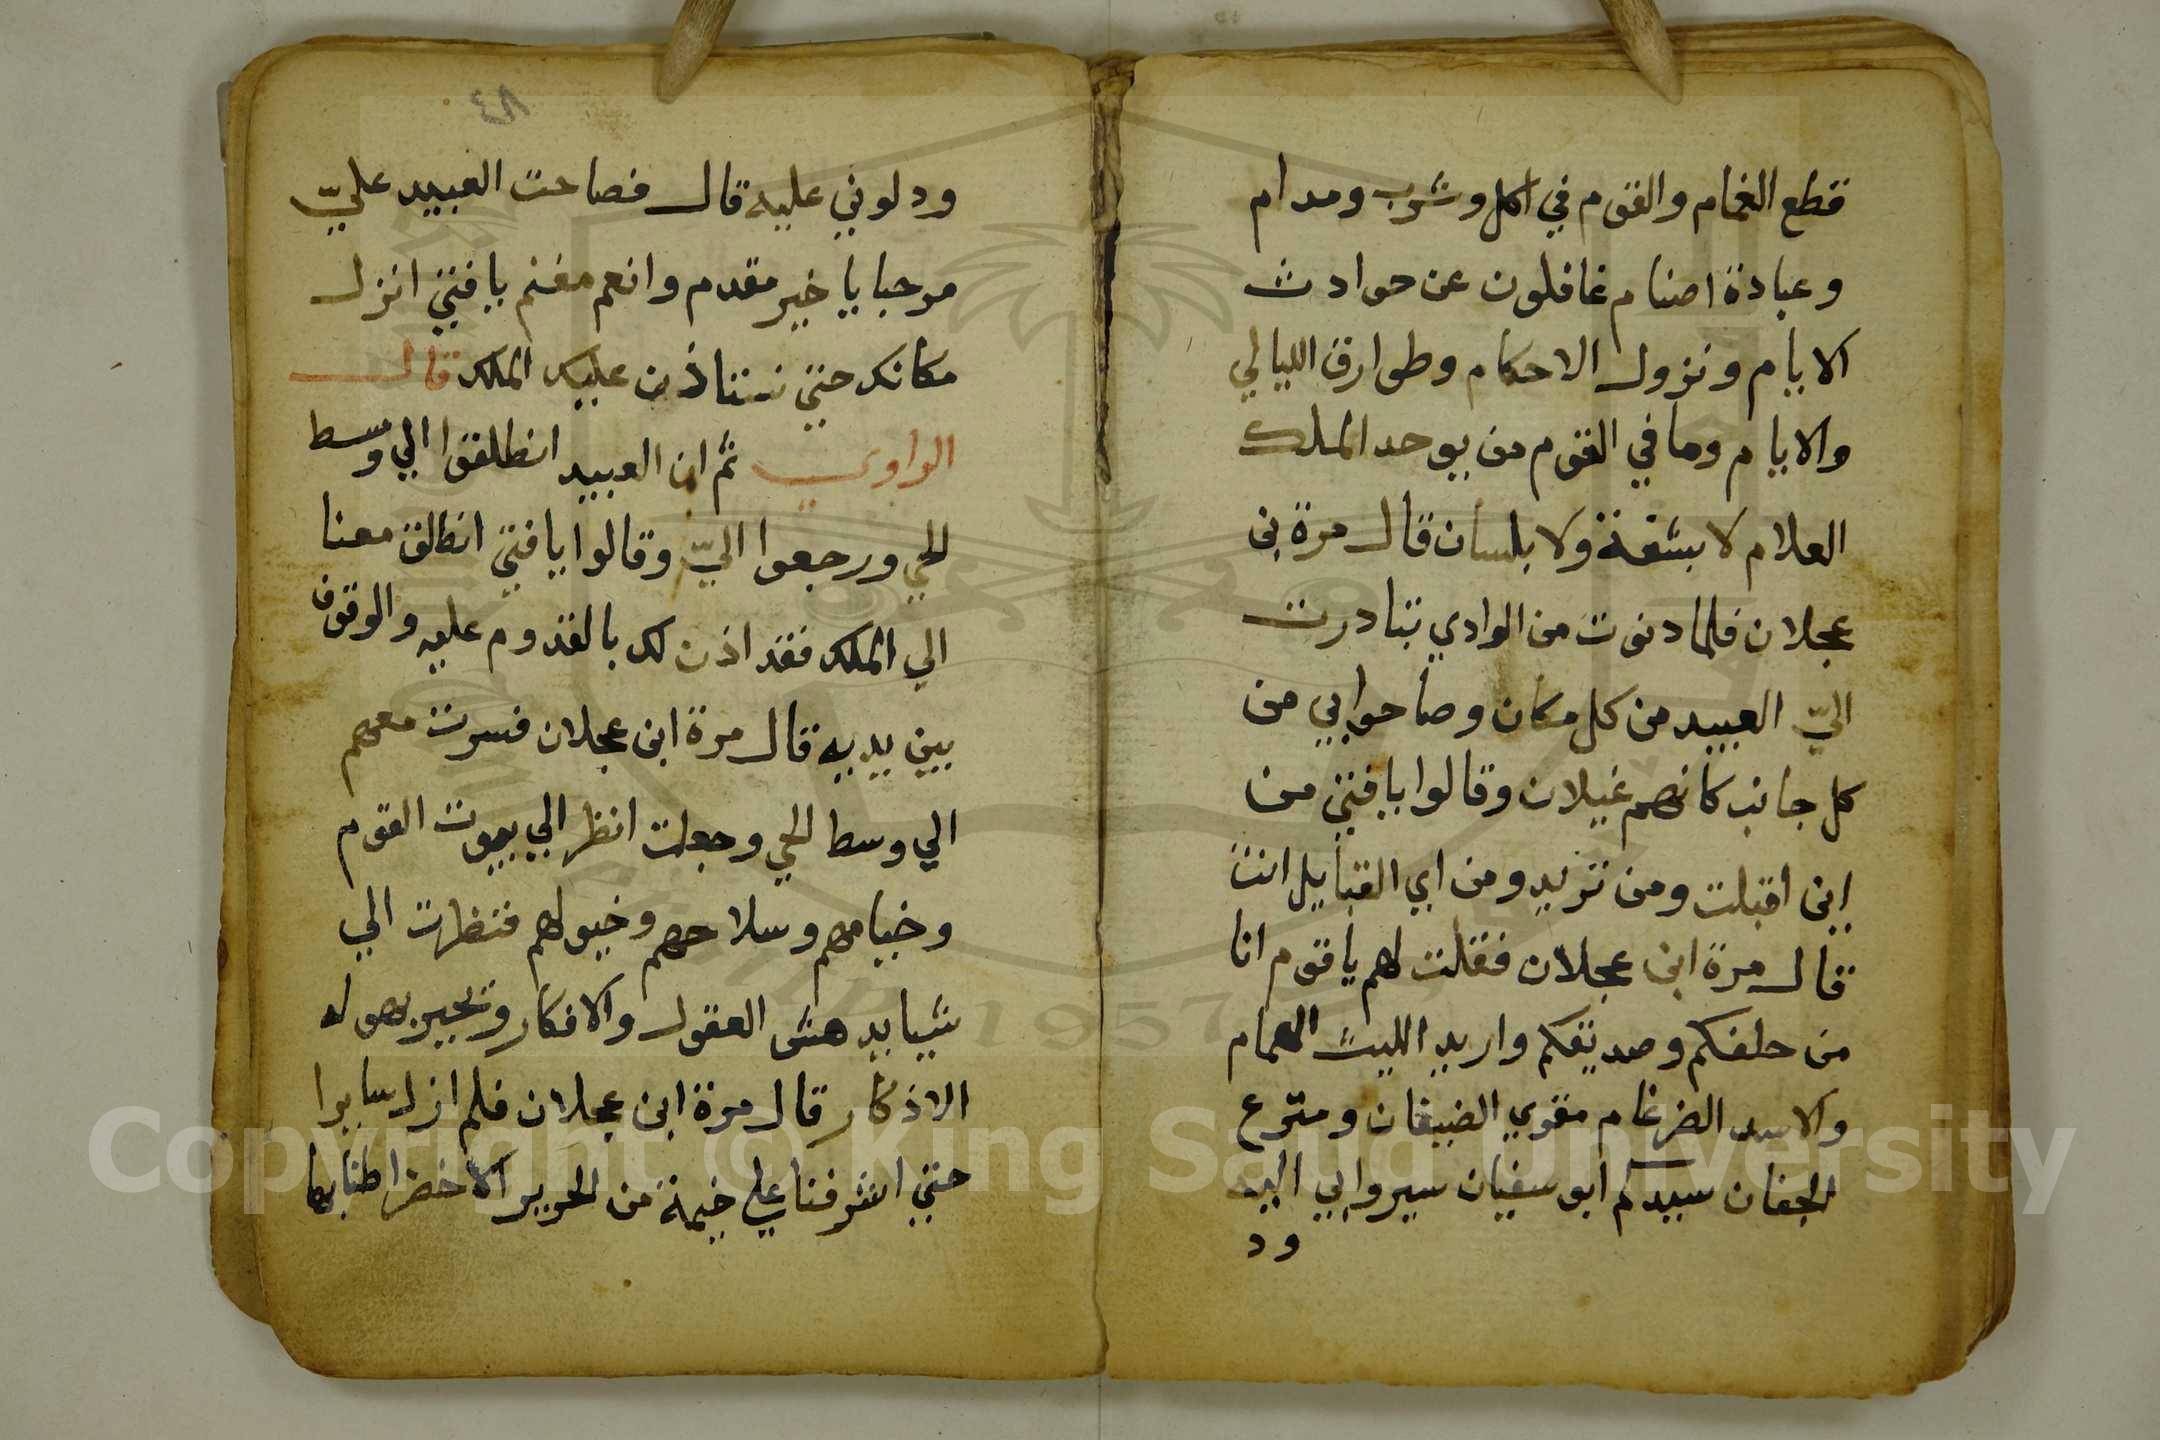 قطع الغمام والقوم في اكل وشرب ومدام
وعبادة اصنام غافلون عن حوادث
الايام ونزول الاحكام وطوارق الليالي
والايام وما في القوم من يوحد الملك
العلام لا بشفة ولا بلسان قال مرة بن
عجلان فلما دنوت من الوادي تبادرت
اليّ العبيد من كل مكان وصاحوا بي من
كل جانب كانهم غيلان وقالوا يا فتي من
اين اقبلت ومن تريد ومن اي القبايل انت
قال مرة ابن عجلان فقلت لهم يا قوم انا
من حلفكم وصديقكم واريد الليث الهمام
والاسد الضرغام مقوي الضيفان ومترع
الجفان سيدكم ابو سفيان سيروا بي اليه
ود
٨٤
ودلوني عليه قال فصاحت العبيد عليّ
مرحبا يا خير مقدم وانعم مغنم يا فتي انزل
مكانك حتي نستاذن عليك الملك قال
الراوي ثم ان العبيد انطلقوا الي وسط
الحي ورجعوا اليّ وقالوا يا فتي انطلق معنا
الي الملك فقد اذن لك بالقدوم عليه والوقوف
بين يديه قال مرة ابن عجلان فسرت معهم
الي وسط الحي وجعلت انظر الي بيوت القوم
وخيامهم وسلاحهم وخيولهم فنظرت الي
شيا يدهش العقول والافكار وتحير بهوله
الاذكار قال مرة ابن عجلان فلم ازل سايرا
حتي اشرفنا علي خيمة من الحرير الاخضر اطنابها
Copyright © King Saud University
1957